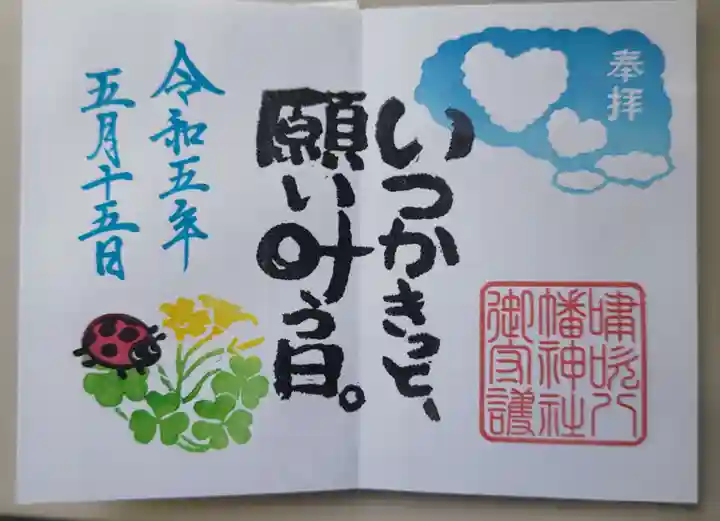 奉拝
いつかきっと、
願い叶う日。
令和五年
五月十五日
嘯吹八
幡神社
御守護